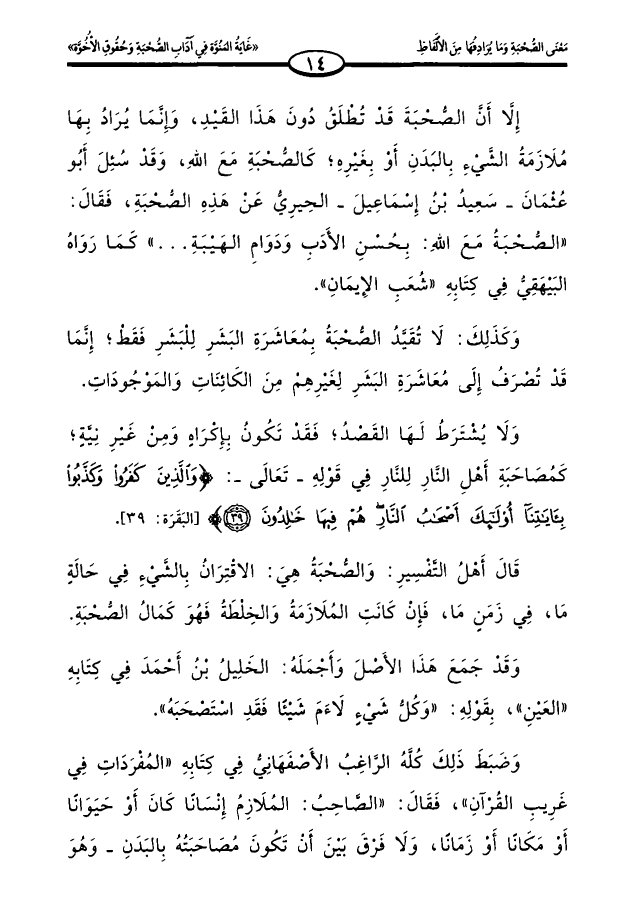 مَعْنَى الصُّحْبَةِ وَمَا يُرَادِفُهَا مِنَ الْأَلْفَاظِ
«غَايَةُ المُنُوَّة فِي آدَابِ الصُّحْبَةِ وَحُقُوقِ الْأُخُوَّة»
١٤
إِلَّا أَنَّ الصُّحْبَةَ قَدْ تُطْلَقُ دُونَ هَذَا القَيْدِ، وَإِنَّمَا يُرَادُ بِهَا
مُلَازَمَةُ الشَّيْءِ بِالبَدَنِ أَوْ بِغَيْرِهِ؛ كَالصُّحْبَةِ مَعَ اللهِ، وَقَدْ سُئِلَ أَبُو
عُثْمَانَ ـ سَعِيدُ بْنُ إِسْمَاعِيلَ ـ الحِيرِيُّ عَنْ هَذِهِ الصُّحْبَةِ، فَقَالَ:
«الصُّحْبَةُ مَعَ اللهِ: بِحُسْنِ الأَدَبِ وَدَوَامِ الهَيْبَةِ...» كَمَا رَوَاهُ
البَيْهَقِيُّ فِي كِتَابِهِ «شُعَبِ الإِيمَانِ».
وَكَذَلِكَ: لَا تُقَيَّدُ الصُّحْبَةُ بِمُعَاشَرَةِ البَشَرِ لِلْبَشَرِ فَقَطْ؛ إِنَّمَا
قَدْ تُصْرَفُ إِلَى مُعَاشَرَةِ البَشَرِ لِغَيْرِهِمْ مِنَ الكَائِنَاتِ وَالمَوْجُودَاتِ.
وَلَا يُشْتَرَطُ لَهَا القَصْدُ؛ فَقَدْ تَكُونُ بِإِكْرَاهٍ وَمِنْ غَيْرِ نِيَّةٍ؛
كَمُصَاحَبَةِ أَهْلِ النَّارِ لِلنَّارِ فِي قَوْلِهِ ـ تَعَالَى ـ: ﴿وَٱلَّذِينَ كَفَرُوا۟ وَكَذَّبُوا۟
بِـَٔايَـٰتِنَآ أُو۟لَـٰٓئِكَ أَصْحَـٰبُ ٱلنَّارِۖ هُمْ فِيهَا خَـٰلِدُونَ ٣٩﴾ [البَقَرَة: ٣٩].
قَالَ أَهْلُ التَّفْسِيرِ: وَالصُّحْبَةُ هِيَ: الاقْتِرَانُ بِالشَّيْءِ فِي حَالَةٍ
مَا، فِي زَمَنٍ مَا، فَإِنْ كَانَتِ المُلَازَمَةُ وَالخِلْطَةُ فَهُوَ كَمَالُ الصُّحْبَةِ.
وَقَدْ جَمَعَ هَذَا الأَصْلَ وَأَجْمَلَهُ: الخَلِيلُ بْنُ أَحْمَدَ فِي كِتَابِهِ
«العَيْنِ»، بِقَوْلِهِ: «وَكُلُّ شَيْءٍ لَاءَمَ شَيْئًا فَقَدِ اسْتَصْحَبَهُ».
وَضَبَطَ ذَلِكَ كُلَّهُ الرَّاغِبُ الأَصْفَهَانِيُّ فِي كِتَابِهِ «المُفْرَدَاتِ فِي
غَرِيبِ القُرْآنِ»، فَقَالَ: «الصَّاحِبُ: المُلَازِمُ إِنْسَانًا كَانَ أَوْ حَيَوَانًا
أَوْ مَكَانًا أَوْ زَمَانًا، وَلَا فَرْقَ بَيْنَ أَنْ تَكُونَ مُصَاحَبَتُهُ بِالبَدَنِ ـ وَهُوَ